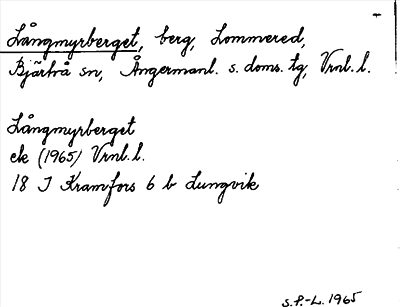 Långmyrberget, berg, Lommered,
Bjärtrå sn, Ångermanl. s. doms. tg, Vrnl. l.
Långmyrberget
ek (1965) Vrnl. l.
18 J Kramfors 6 b Lungvik
S.P.-L. 1965